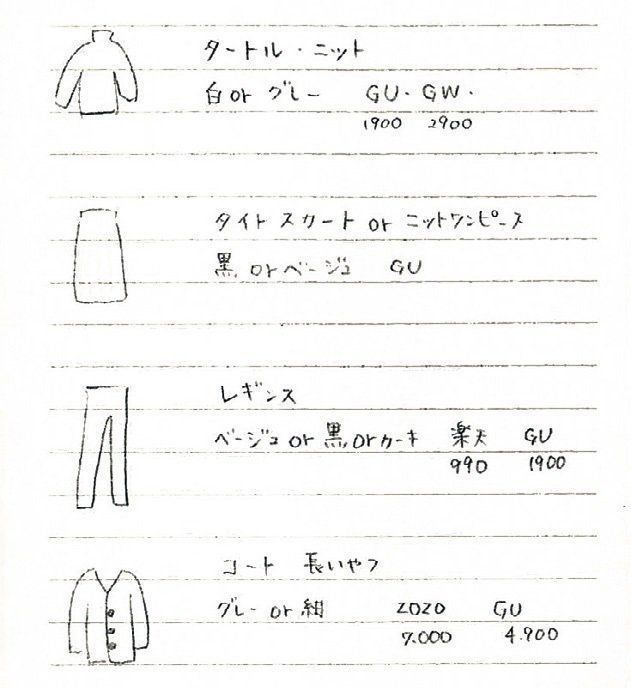 タートル・ニット
白 or グレー GU・GW・
1900 2900
タイトスカート or ニットワンピース
黒 or ベージュ GU
レギンス
ベージュ or 黒 or カーキ 楽天 GU
990 1900
コート 長いやつ
グレー or 紺 ZOZO GU
7.000 4.900